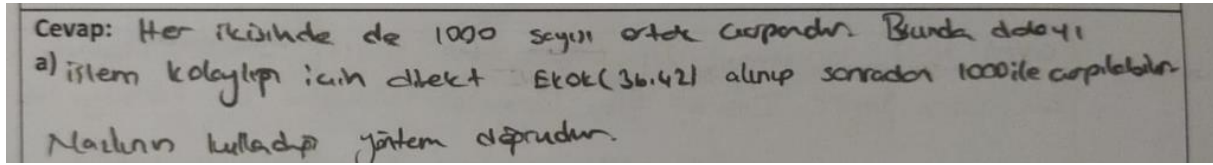 Cevap: Her ikisinde de 1000 sayısı ortak çarpandır. Bunda dolayı
a) işlem kolaylığı için direkt EKOK(36.42) alınıp sonradan 1000 ile çarpılabilir
kulladığı yöntem doğrudur.